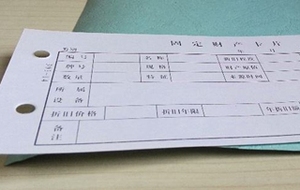 固定财产卡片
类别 年 月
编号 名称
牌号 规格 财产原值
数量 特征 来源时间
所属
设备
折旧价格 折旧年限 年折旧
备
注